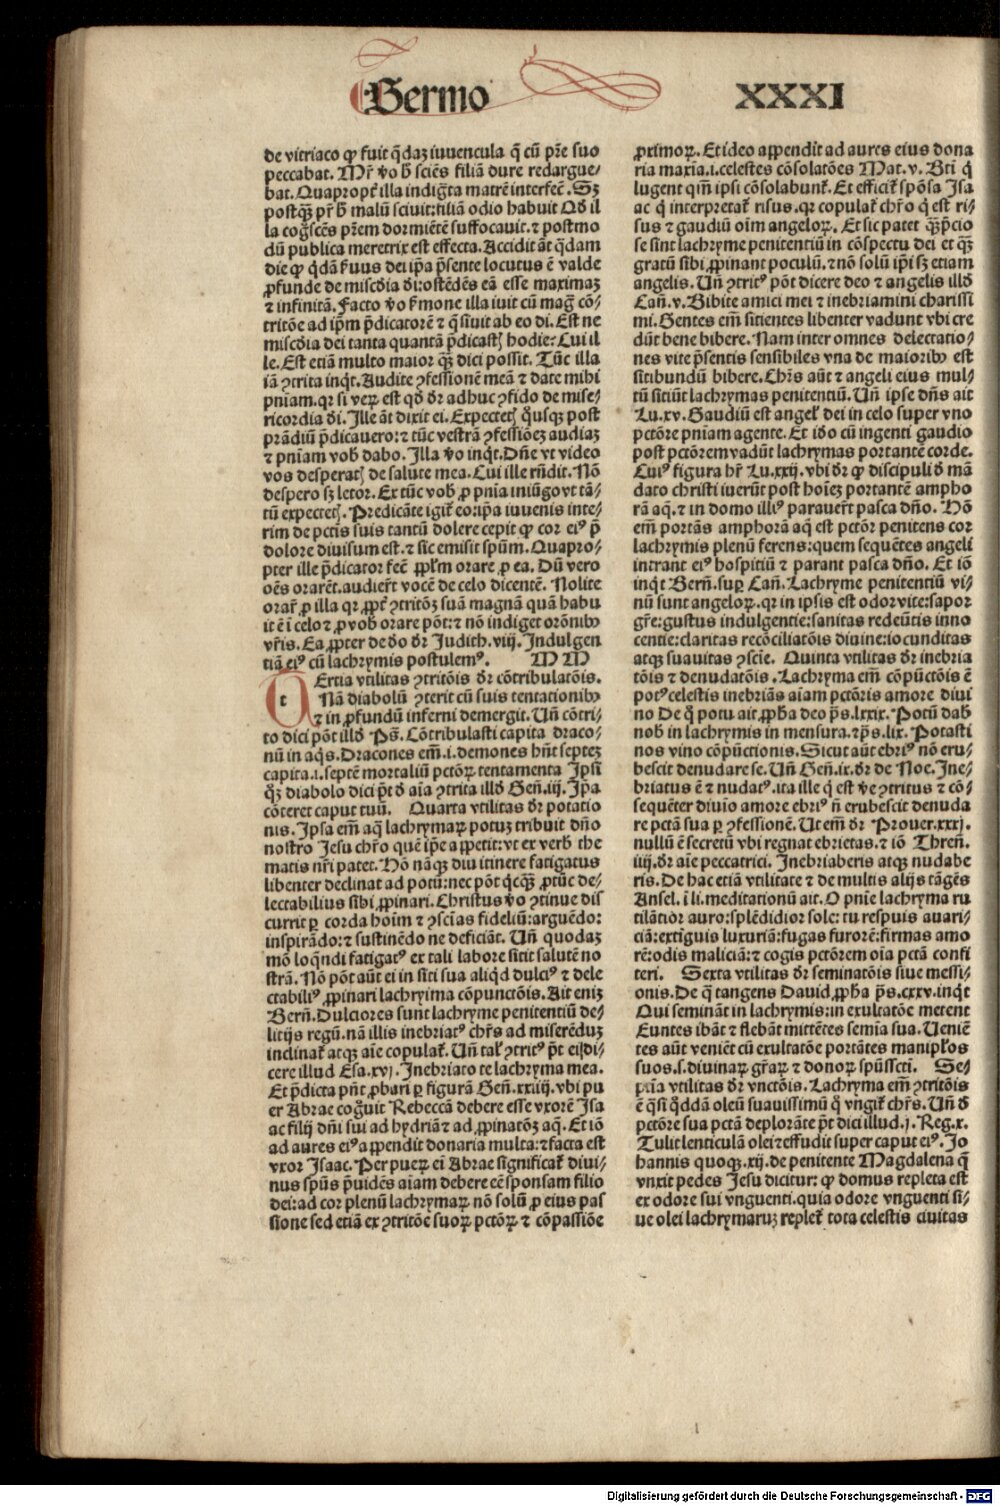 Sermo XXXI
de vitriaco qꝙ fuit q̄daʒ iuuencula q̄ cū pr̄e suo
peccabat. Mr̄ v̊o h̄ sciēs filiā dure redargue-
bat. Quapropt̄ illa indigͣta matrē interfec̄. Sʒ
postq̄ʒ pr̄ h̄ malū sciuit: filiā odio habuit Qd̄ il
la cog̃scēs pr̄em dormiētē suffocauit. ⁊ postmo
dū publica meretrix est effecta. Accidit āt q̄dam
die ꝙ q̄dā ẜuus dei ip̄a p̄sente locutus ē valde
ꝓfunde de miscd̄ia dī: ostēdēs eā esse maximaʒ
⁊ infinitā. Facto v̊o ẜmone illa iuit cū magͣ cō-
tritōe ad ip̄m p̄dicatorē ⁊ q̄siuit ab eo di. Est ne
miscd̄ia dei tanta quantā p̄dicastꝭ hodie: Cui il
le. Est etiā multo maior q̄ʒ dici possit. Tūc illa
iā ꝯtrita inqͥt. Audite ꝯfessionē meā ⁊ date mihi
pn̄iam. qꝛ si veꝝ est qd̄ dr̄ adhuc ꝯfido de mise-
ricordia dī. Ille āt dixit ei. Expectetꝭ q̄usqꝫ post
prādiū p̄dicauero: ⁊ tūc vestrā ꝯfessiōeʒ audiaʒ
⁊ pn̄iam vob̄ dabo. Illa v̊o inqͥt. Dn̄e vt video
vos desperatꝭ de salute mea. Cui ille rn̄dit. Nō
despero sʒ letor. Ex tūc vob̄ ꝓ pn̄ia iniūgo vt tā-
tū expectetꝭ. Predicāte igit̄ eo ip̄a iuuenis inte-
rim de pctīs suis tantū dolere cepit ꝙ cor eiꝰ p̄
dolore diuisum est. ⁊ sic emisit spūm. Quapro-
pter ille p̄dicator fec̄ ꝓplm̄ orare ꝓ ea. Dū vero
oēs orarēt. audier̄t vocē de celo dicentē. Nolite
orar̄ ꝓ illa qꝛ ꝓpt̄ ꝯtritōʒ suā magnā quā habu
it ē ī celo ⁊ ꝓ vob̄ orare pōt: ⁊ nō indiget orōnibꝰ
vr̄is. Ea ꝓpter de do dr̄ Judith. viij. Indulgen
tiā eiꝰ cū lachrymis postulemꝰ. M M
Tertia vtilitas ꝯtritōis dr̄ cōtribulatōis.
Nā diabolū ꝯterit cū suis tentationibꝰ
⁊ in ꝓfundū inferni demergit. Un̄ cōtri-
to dici pōt illd̄ Ps̄. Cōtribulasti capita draco-
nū in aqͥs. Dracones em̄. i. demones hn̄t septeʒ
capita. i. septē mortaliū pctōꝝ tentamenta Ipsī
q̊ʒ diabolo dici pt̄ d̄ aīa ꝯtrita illd̄ Gen̄. iij. Ip̄a
cōteret caput tuū. Quarta vtilitas dr̄ potatio
nis. Ipsa em̄ aq̄ lachrymaꝝ potuʒ tribuit dn̄o
nostro Jesu chr̄o quē ip̄e appetit: vt ex verb̄ the
matis nr̄i patet. Hō nāqꝫ diu itinere fatigatus
libenter declinat ad potū: nec pōt qͥcq̄ʒ ꝓtūc de-
lectabilius sibi ꝓpinari. Christus v̊o ꝯtinue dis
currit ꝑ corda hoīm ⁊ ꝯsciās fideliū: arguēdo:
inspirādo: ⁊ sustinēdo ne deficiāt. Un̄ quodaʒ
mō loqͣndi fatigatꝰ ex tali labore sitit salutē no
strā. Nō pōt aūt ei in siti sua aliqͥd dulciꝰ ⁊ dele
ctabiliꝰ ꝓpinari lachryma cōpunctōis. Ait eniʒ
Bern̄. Dulciores sunt lachryme penitentiū de-
litijs regū. nā illis inebriatꝰ chr̄s ad miserēduʒ
inclinat̄ atqꝫ aīe copulat̄. Un̄ talꝭ ꝯtritꝰ pt̄ ei di-
cere illud Esa. xvj. Inebriato te lachryma mea.
Et p̄dicta pn̄t ꝓbari ꝑ figurā Gen̄. xxiiij. vbi pu
er Abrae cog̃uit Rebeccā debere esse vxorē Isa
ac filij dn̄i sui ad hydriā ⁊ ad ꝓpinatōʒ aq̄. Et iō
ad aures eiꝰ appendit donaria multa: ⁊ facta est
vxor Isaac. Per pueꝝ ei Abrae significat̄ diui-
nus spūs p̄uidēs aīam debere eē sponsam filio
dei: ad cor plenū lachrymaꝝ nō solū ꝓ eius pas
sione sed etiā ex ꝯtritōe suoꝝ pctōꝝ ⁊ cōpassiōe
ꝓximoꝝ. Et ideo appendit ad aures eius dona
ria maxīa. i. celestes cōsolatōes Mat. v. Bt̄i q̄
lugent qm̄ ipsi cōsolabunt̄. Et efficit̄ spōsa Isa
ac q̄ interpretat̄ risus. qꝛ copulat̄ chr̄o qͥ est ri-
sus ⁊ gaudiū oīm angeloꝝ. Et sic patet q̄ʒ p̄cio
se sint lachryme penitentiū in cōspectu dei et q̄ʒ
gratū sibi ꝓpinant poculū. ⁊ nō solū ip̄i sʒ etiam
angelis. Un̄ ꝯtritꝰ pōt dicere deo ⁊ angelis illd̄
Can̄. v. Bibite amici mei ⁊ inebriamini charissi
mi. Gentes em̄ sitientes libenter vadunt vbi cre
dūt bene bibere. Nam inter omnes delectatio-
nes vite p̄sentis sensibiles vna de maioribꝰ est
sitibundū bibere. Chr̄s aūt ⁊ angeli eius mul-
tū sitiūt lachrymas penitentiū. Un̄ ipse dn̄s ait
Lu. xv. Gaudiū est angel̄ dei in celo super vno
pctōre pn̄iam agente. Et ido cū ingenti gaudio
post pctōrem vadūt lachrymas portantē corde.
Cuiꝰ figura hr̄ Lu. xxij. vbi dr̄ ꝙ discipuli d̄ mā
dato christi iuerūt post hoīeʒ portantē ampho
rā aq̄. ⁊ in domo illiꝰ parauer̄t pasca dn̄o. Hō
em̄ portās amphorā aq̄ est pctōr penitens cor
lachrymis plenū ferens: quem sequētes angeli
intrant eiꝰ hospitiū ⁊ parant pasca dn̄o. Et iō
inqͥt Bern̄. suꝑ Can̄. Lachryme penitentiū vi-
nū sunt angeloꝝ. qꝛ in ipsis est odor vite: sapor
gr̄e: gustus indulgentie: sanitas redeūtis inno
centie: claritas recōciliatōis diuine: iocunditas
atqꝫ suauitas ꝯscīe. Quinta vtilitas dr̄ inebria
tōis ⁊ denudatōis. Lachryma em̄ cōpūctōis ē
potꝰ celestis inebriās aīam pctōris amore diui
no De q̊ potu ait ꝓpha deo ps̄. lxxix. Potū dab̄
nob̄ in lachrymis in mensura. ⁊ ps̄. lix. Potasti
nos vino cōpūctionis. Sicut aūt ebriꝰ nō eru-
bescit denudare se. Un̄ Gen̄. ix. dr̄ de Noe. Ine-
briatus ē ⁊ nudatꝰ. ita ille qͥ est v̊e ꝯtritus ⁊ cō-
sequēter diuīo amore ebriꝰ n̄ erubescit denuda
re pctā sua ꝑ ꝯfessionē. Ut em̄ dr̄ Prouer. xxxj.
nullū ē secretū vbi regnat ebrietas. ⁊ iō Thren̄.
iiij. dr̄ aīe peccatrici. Inebriaberis atqꝫ nudabe
ris. De hac etiā vtilitate ⁊ de multis alijs tāgēs
Ansel. ī li. meditationū ait. O pn̄ie lachryma ru
tilātior auro: splēdidior sole: tu respuis auari-
ciā: extīguis luxuriā: fugas furorē: firmas amo
rē: odis maliciā: ⁊ cogis pctōrem oīa pctā confi
teri. Sexta vtilitas dr̄ seminatōis siue messi-
onis. De q̄ tangens Dauid ꝓpha ps̄. cxxv. inqͥt
Qui semināt in lachrymis: in exultatōe metent
Euntes ibāt ⁊ flebāt mittētes semīa sua. Ueniē
tes aūt veniēt cū exultatōe portātes manipl̄os
suos. s. diuinaꝝ gr̄aꝝ ⁊ donoꝝ spūsscti. Se-
ptīa vtilitas dr̄ vnctōis. Lachryma em̄ ꝯtritōis
ē q̄si q̊ddā oleū suauissimū q̊ vngit̄ chr̄s. Un̄ d̄
pctōre sua pctā deplorāte pt̄ dici illud. j. Reg. x.
Tulit lenticulā olei ⁊ effudit super caput eiꝰ. Jo
hannis quoqꝫ. xij. de penitente Magdalena q̄
vnxit pedes Jesu dicitur: ꝙ domus repleta est
ex odore sui vnguenti. quia odore vnguenti si-
ue olei lachrymaruʒ replet̄ tota celestis ciuitas
Digitalisierung gefördert durch die Deutsche Forschungsgemeinschaft - DFG